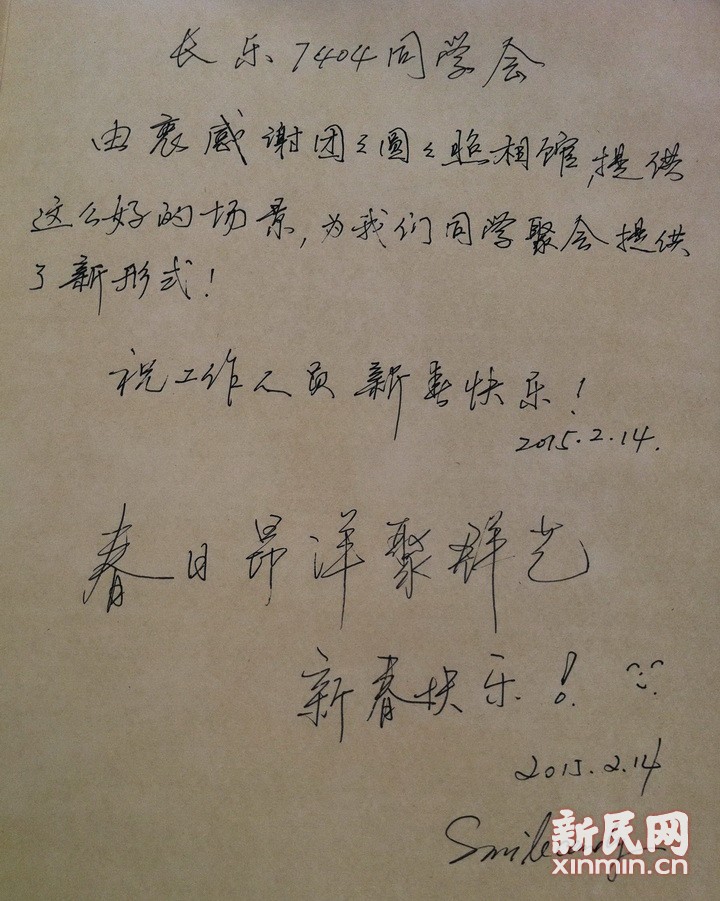 长乐7404同学会
由衷感谢团团圆圆照相馆,提供
这么好的场景,为我们同学聚会提供
了新形式!
祝工作人员新春快乐!
2015.2.14.
春日昂洋聚群艺
新春快乐!
2015.2.14
新民网
xinmin.cn